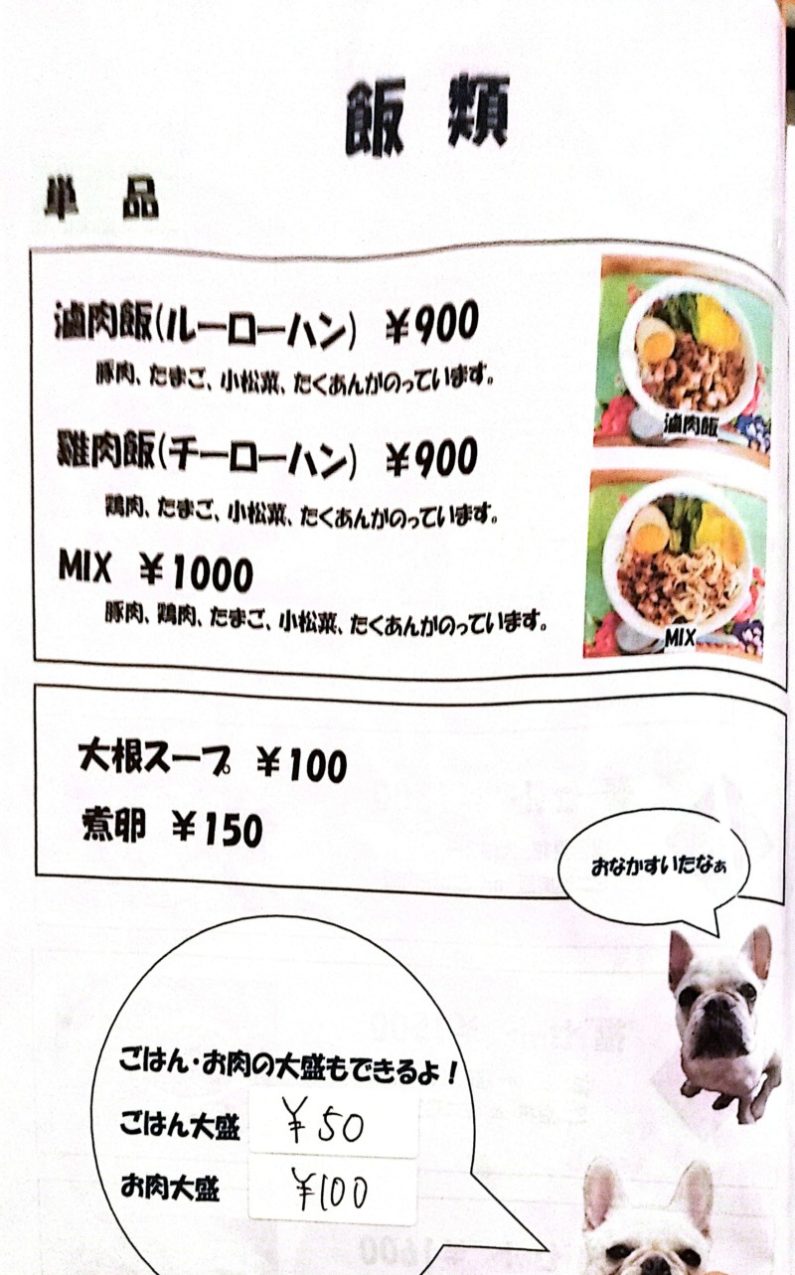 飯類
単品
滷肉飯(ルーローハン) ¥900
豚肉、たまご、小松菜、たくあんがのっています。
雞肉飯(チーローハン) ¥900
鶏肉、たまご、小松菜、たくあんがのっています。
MIX ¥1000
豚肉、鶏肉、たまご、小松菜、たくあんがのっています。
滷肉飯
MIX
大根スープ ¥100
煮卵 ¥150
おなかすいたなぁ
ごはん・お肉の大盛もできるよ！
ごはん大盛 ¥50
お肉大盛 ¥100